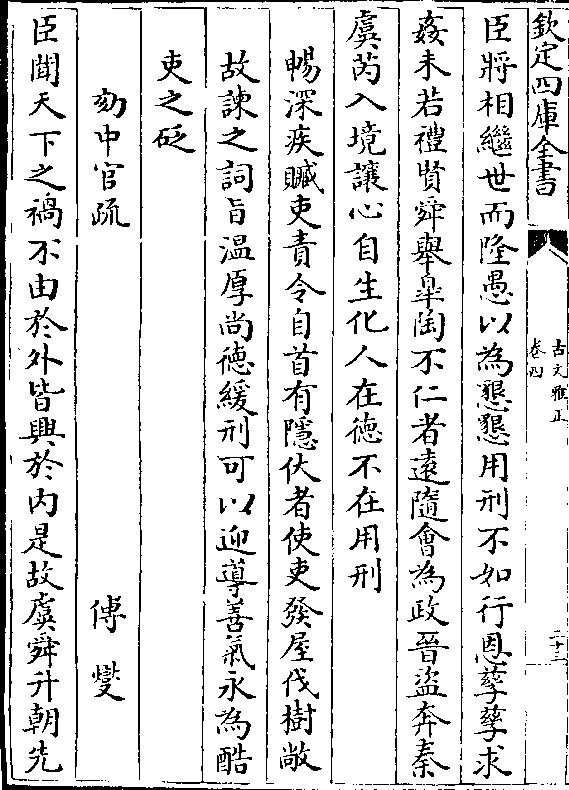 欽定四庫全書
古文雅正
卷四
二十三
臣將相繼世而隆愚以為懇懇用刑不如行恩孳孳求
姦未若禮賢舜舉臯陶不仁者遠隨會為政晉盜奔秦
虞芮入境讓心自生化人在徳不在用刑
暢深疾贓吏責令自首有隱伏者使吏發屋伐樹敞
故諫之詞旨温厚尚徳緩刑可以迎導善氣永為酷
吏之砭
劾中官疏
傅燮
臣聞天下之禍不由於外皆興於内是故虞舜升朝先